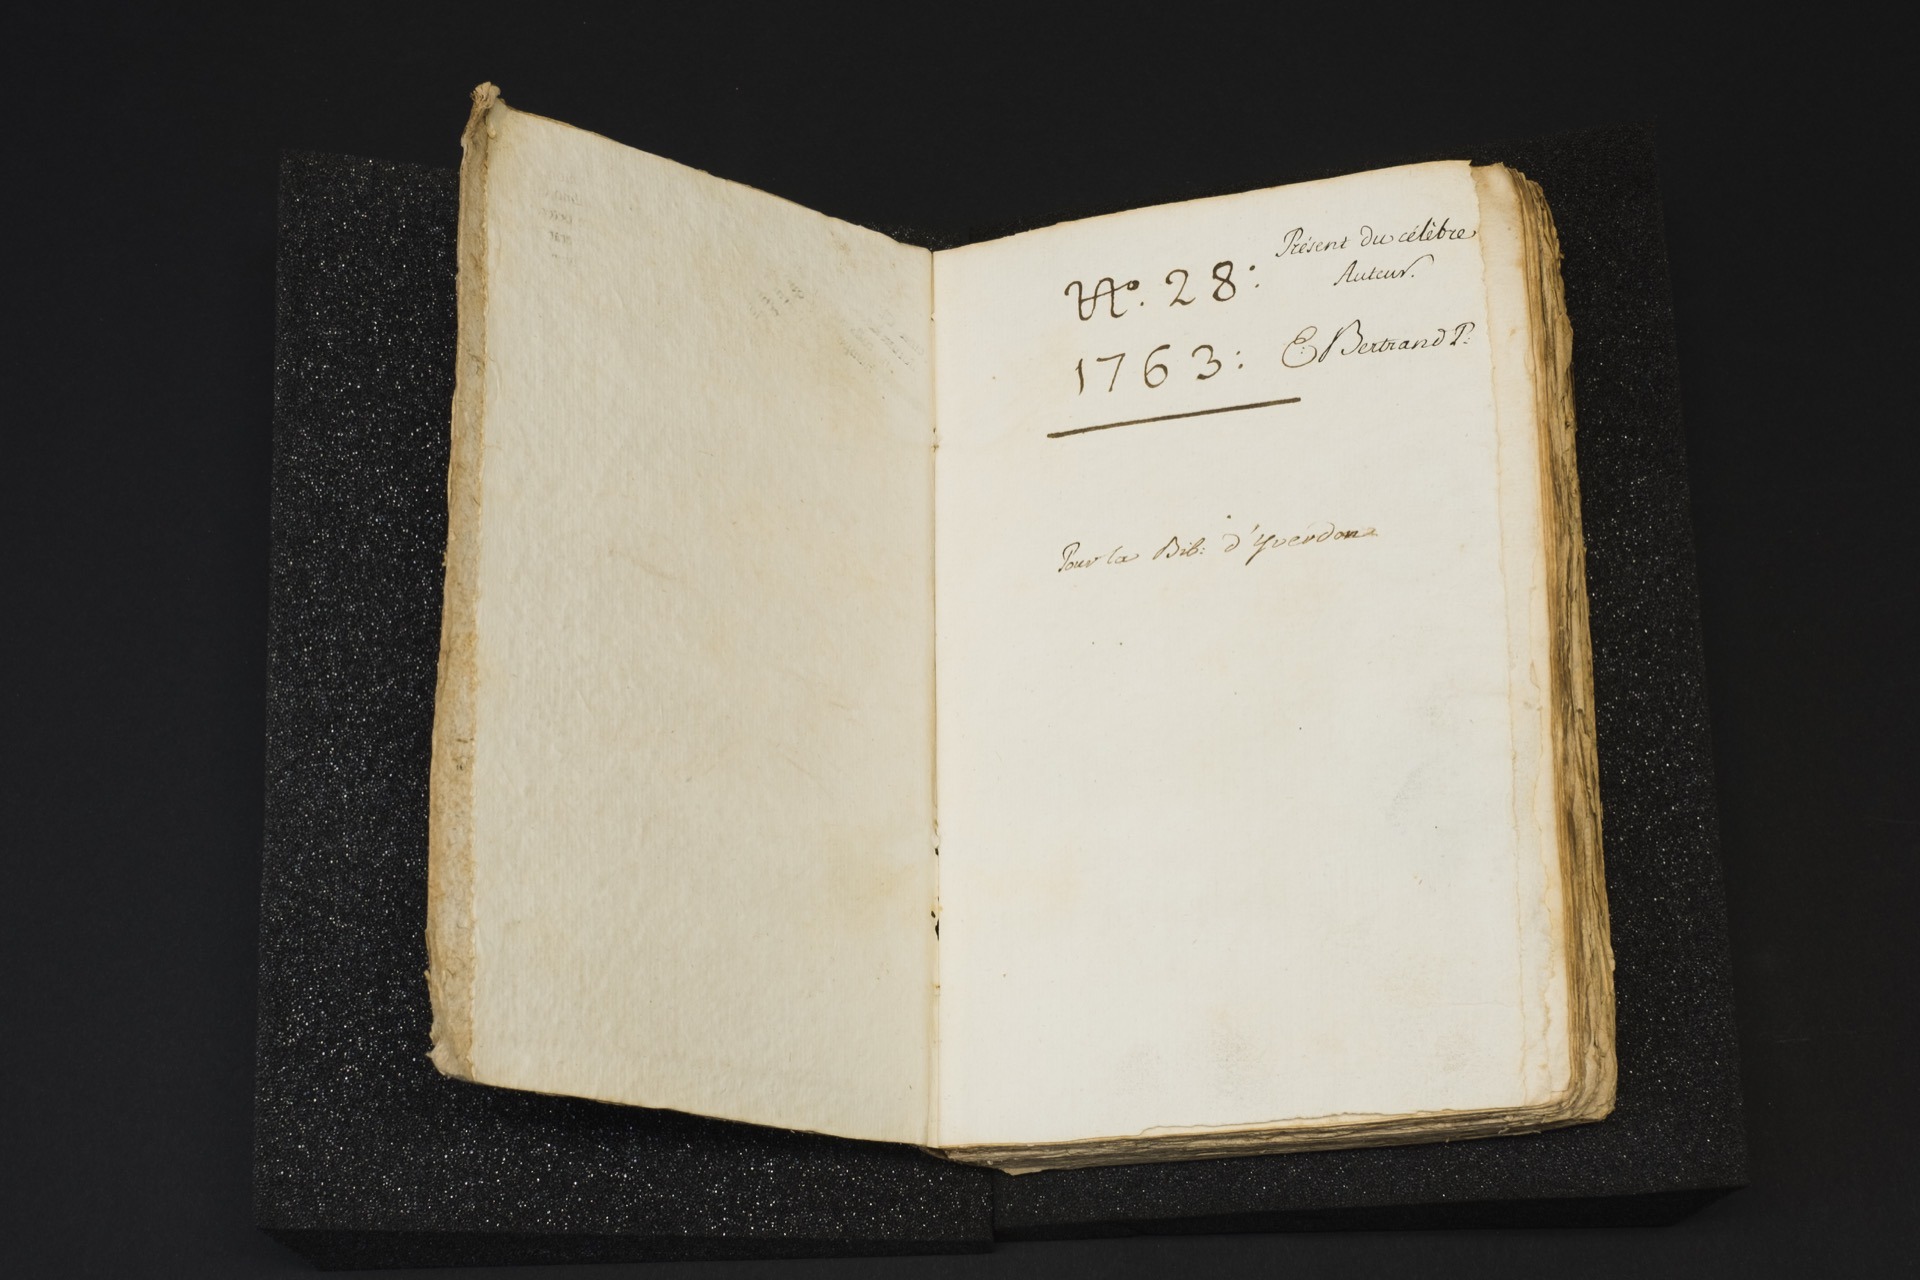 N°. 28: Présent du célèbre
Auteur.
1763: E: Bertrand P:
Pour la Bib: d'Yverdon